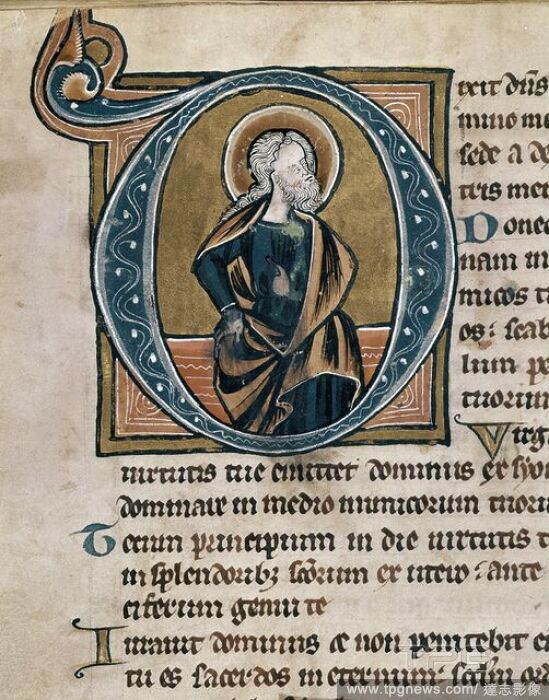 Dixit dns
mino me
sede a de
tris mei
Donec
nam ini
micos t
os: scab
lum pe
tuorum
Virg
uirtutis tue emittet dominus ex syo
dominare in medio inimicorum tuor
Tecum principium in die uirtutis t
in splendoribz scorum ex utero : ante
ciferum genui te
Iurauit dominus et non penitebit e
tu es sacerdos in eternum: scdm ord
www.tpgnews.com / 達志影像